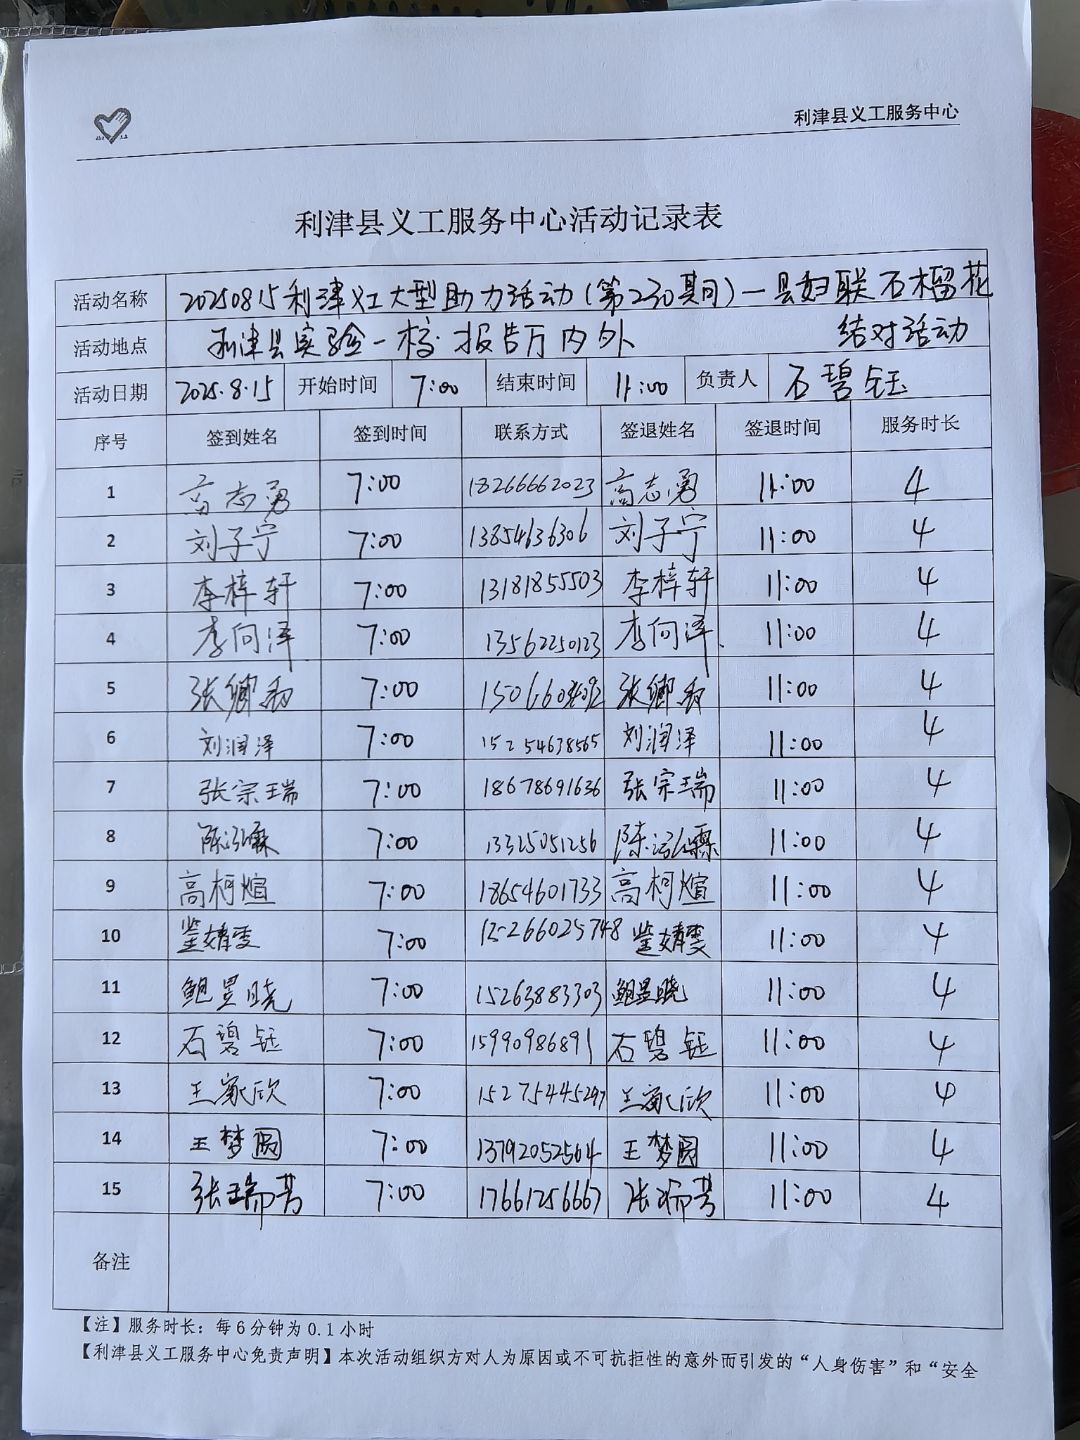 利津县义工服务中心
利津县义工服务中心活动记录表
活动名称 20250815利津义工大型助力活动(第230期)一县妇联石榴花
结对活动
活动地点 利津县实验一校报告厅内外
活动日期 2025.8.15 开始时间 7:00 结束时间 11:00 负责人 石碧钰
序号 签到姓名 签到时间 联系方式 签退姓名 签退时间 服务时长
1 高志勇 7:00 18266662023 高志勇 11:00 4
2 刘子宁 7:00 13854636306 刘子宁 11:00 4
3 李梓轩 7:00 13181855503 李梓轩 11:00 4
4 李向泽 7:00 13562250123 李向泽 11:00 4
5 张卿 7:00 张卿 11:00 4
6 刘润泽 7:00 15254638565 刘润泽 11:00 4
7 张宗瑞 7:00 18678691636 张宗瑞 11:00 4
8 陈泓霖 7:00 13325051256 陈泓霖 11:00 4
9 高柯煊 7:00 18654601733 高柯煊 11:00 4
10 7:00 15266025748 11:00 4
11 鲍昱晓 7:00 15263883303 鲍昱晓 11:00 4
12 石碧钰 7:00 15990986891 石碧钰 11:00 4
13 王家欣 7:00 15275445297 王家欣 11:00 4
14 王梦圆 7:00 13792052564 王梦圆 11:00 4
15 张瑞芳 7:00 17661256667 张瑞芳 11:00 4
备注
【注】服务时长：每6分钟为0.1小时
【利津县义工服务中心免责声明】本次活动组织方对人为原因或不可抗拒性的意外而引发的“人身伤害”和“安全